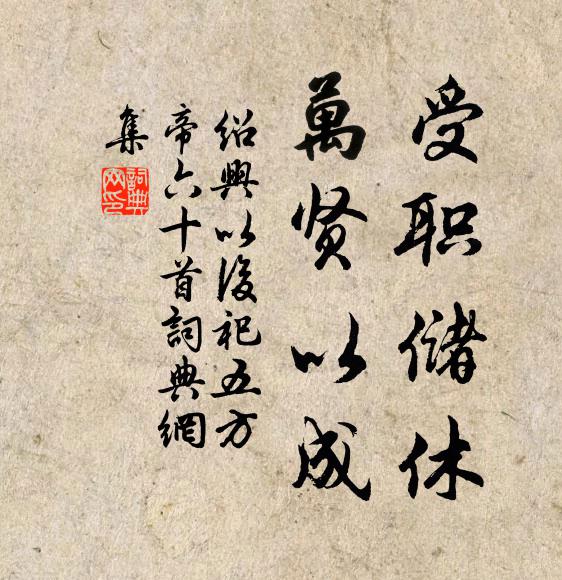 受职储休
萬贤以成
紹興以後祀五方
帝六十首詞典網
集
詞典
网印